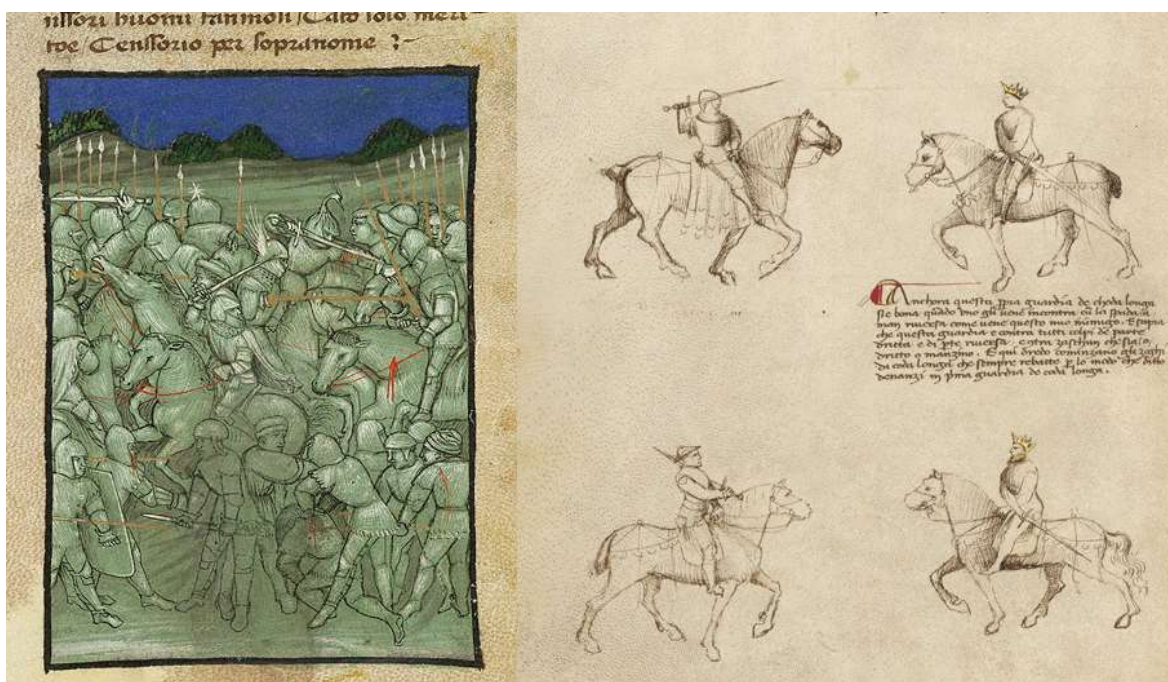 huomi Cato solo meri
toe Censsorio per sopranome
Anchora questa ppia guardia de choda longa
sie bona quado uno gli uene incontra cu la spada a
man riuersa come uene questo mio inimigo. E sapia
che questa guardia e contra tutti colpi de parte
dritta e di pte riuersa, e ctra zaschun che sia o
dritto o manzino. E qui dredo cominzano gli zoghi
da coda longa che sempre rebatte p lo modo che ditto
denanzi in pma guardia de coda longa.